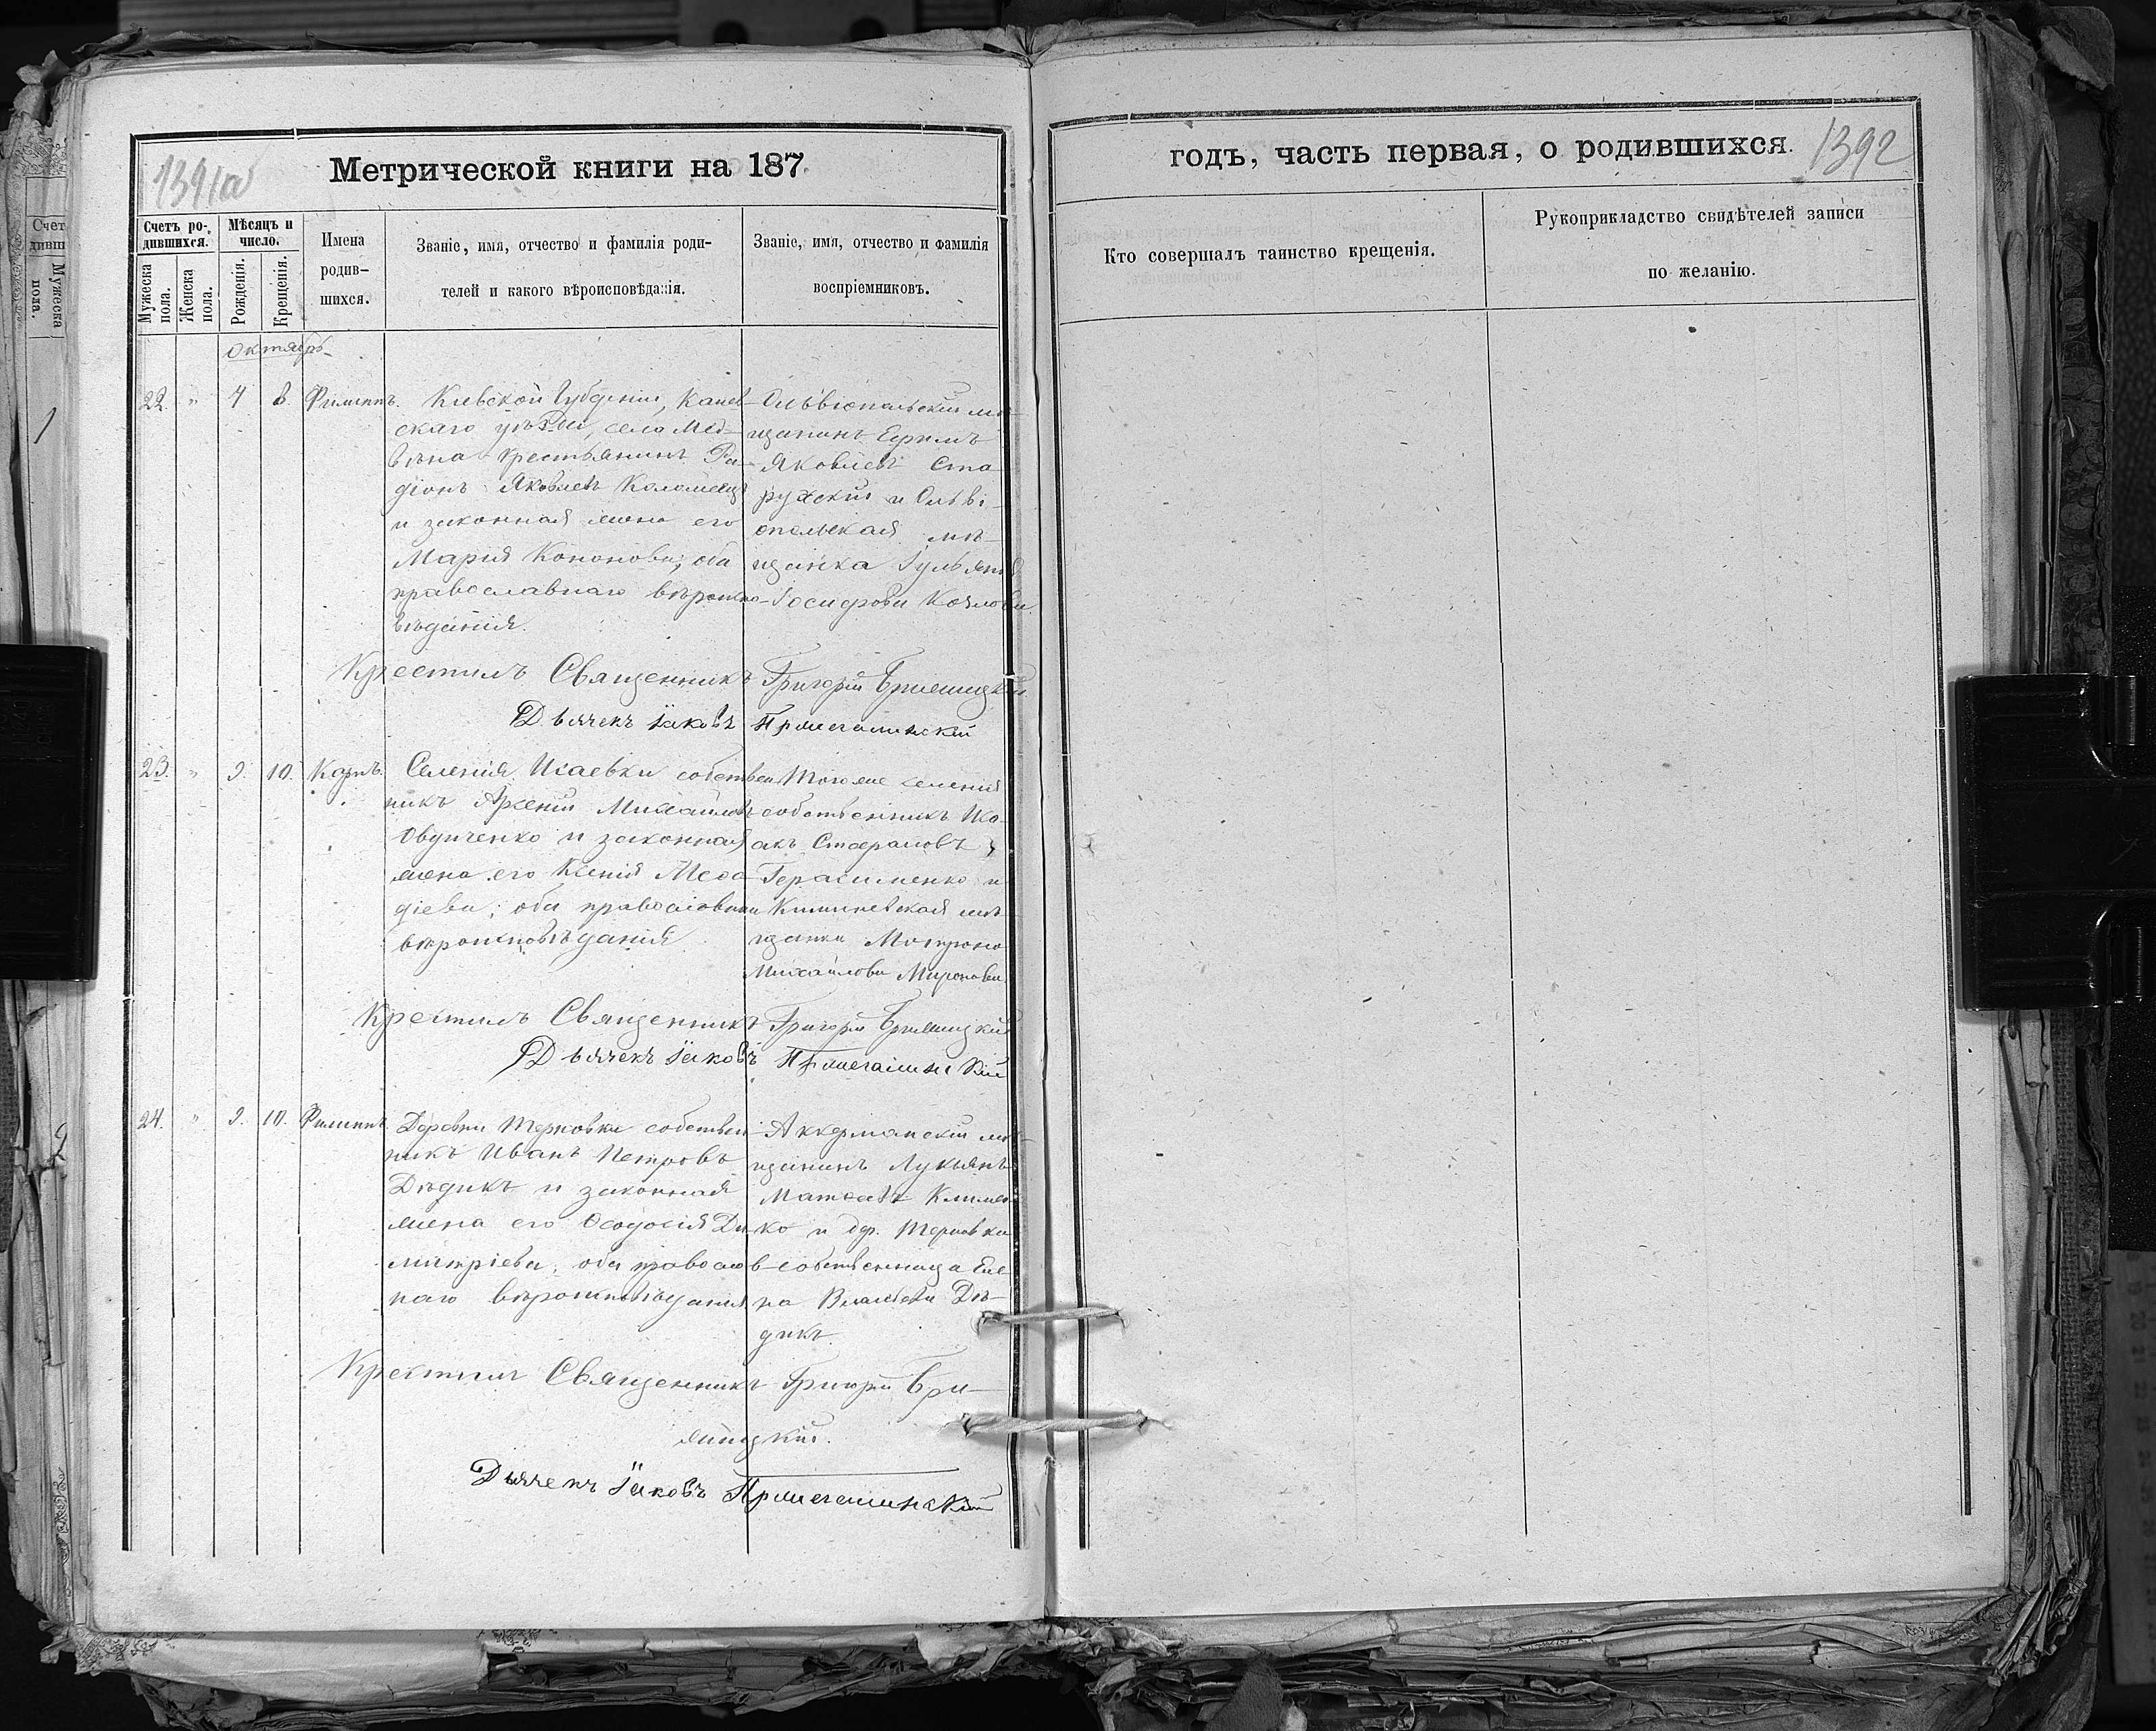 1391а
Метрической книги на 187
Счетъ ро-
дившихся.
Мѣсяцъ и
число.
Мужеска
пола.
Женска
пола.
Рожденія.
Крещенія.
Имена
родив-
шихся.
Званіе, имя, отчество и фамилія роди-
телей и какого вѣроисповѣданія.
Званіе, имя, отчество и фамилія
воспріемниковъ.
Октябрь
22. " 4 8. Филиппъ.
Кіевской Губерніи, Канев-
скаго уѣзда, села Мед-
вѣна крестьянинъ Ра-
діонъ Яковлевъ Коломеецъ
и законная жена его
Марія Кононова; оба
православнаго вѣроиспо-
вѣданія.
Ольвіопольскій мѣ-
щанинъ Ефимъ
Яковлевъ Ста
рускій и Ольві-
опольская мѣ-
щанка Іульянія
Іосифова Козлова
Крестилъ Священникъ Григорій
Дьячекъ Іаковъ
23. " 9. 10. Карпъ.
Селенія Исаевки собствен
никъ Арсеній Михайловъ
Овдіенко и законная
жена его Ксенія Меѳо
діева; оба православнаго
вѣроисповѣданія
Того же селенія
собственникъ Иса-
акъ Стефановъ
Герасименко и
Кишиневская мѣ-
щанка Матрона
Михайлова Миронова
Крестилъ Священникъ Григорій
Дьячекъ Іаковъ
24. " 9. 10. Филиппъ.
Деревни Терновки собствен
никъ Иванъ Петровъ
Дѣдикъ и законная
жена его Ѳеодосія Ди
митріева, оба православ
наго вѣроисповѣданія
Аккерманскій мѣ-
щанинъ Лукьянъ
Матѳеевъ Климен
ко и др. Терновки
собственница Еле
на Власьева Дѣ-
дикъ.
Крестилъ Священникъ Григорій
Дьячекъ Іаковъ
годъ, часть первая, о родившихся.
1392
Кто совершалъ таинство крещенія.
Рукоприкладство свидѣтелей записи
по желанію.